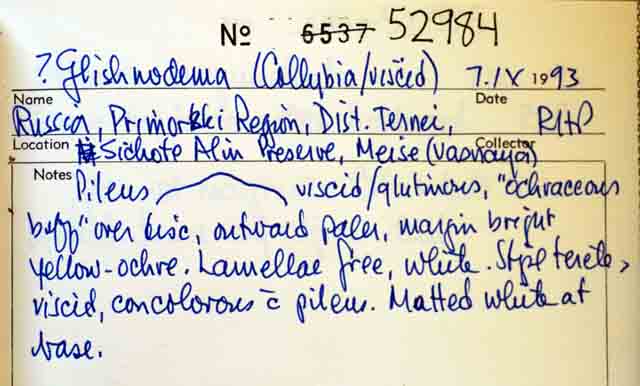 Nº 6537 52984
? Glishnodema (Collybia/viscid) 7.IX 1993
Name Date
Russia, Primorski Region, Dist. Ternei, RHP
Location Sichote Alin Preserve, Meise (Vasnaya) Collector
Notes Pileus viscid/glutinous, "ochraceous
buff" over disc, outward paler, margin bright
yellow-ochre. Lamellae free, white. Stipe terete,
viscid, concolorous c̄ pileus. Matted white at
base.